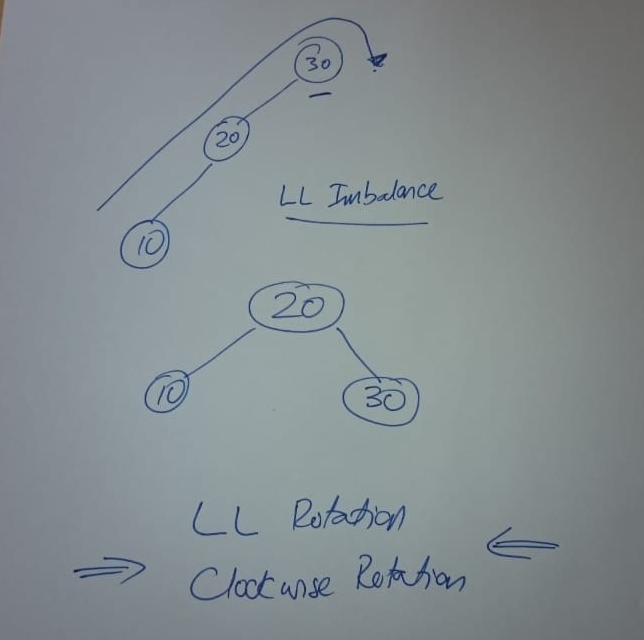 30
20
LL Imbalance
10
20
10
30
LL Rotation
Clockwise Rotation